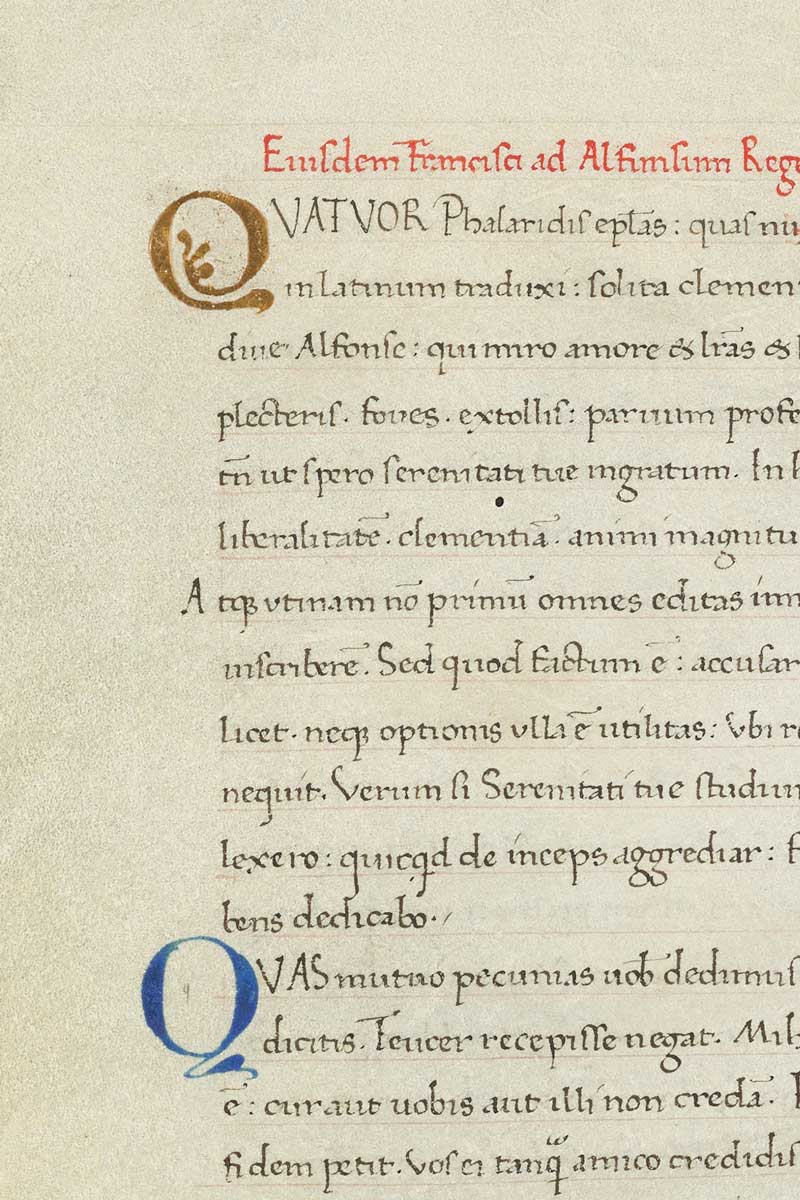 Eiusdem Francisci ad Alfonsum Reg
QVATVOR Phalaridis eplãs: quas nu
in latinum traduxi: solita clemen
diue Alfonse: qui miro amore & lrãs &
plecteris. foves. extollis: paruum profe
tñ ut spero serenitati tue ingratum. In
liberalitatẽ. clementiã. animi magnitu
Atqꝫ vtinam nõ primũ omnes editas inn
inscriberẽ. Sed quod factum ẽ: accusar
licet. neqꝫ optionis vlli ẽ utilitas: Vbi
nequit. Verum si Serenitati tue studiu
lexero: quicqd de inceps aggrediar:
bens dedicabo.
QVAS mutuo pecunias uob dedimus
dicitis. Teucer recepisse negat. Mil
ẽ: curaut uobis aut illi non credã.
fidem petit. Vos ei tanq̃ amico credidis